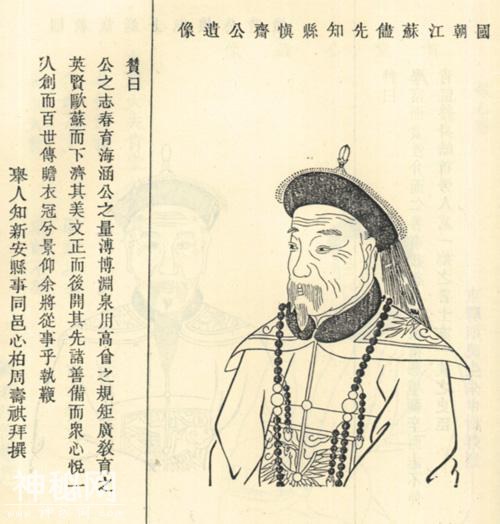 國朝江蘇儘先知縣愼齋公遺像
贊曰
公之志春育海涵公之量溥博淵泉用高曾之規矩廣敎育之
英賢歐蘇而下濟其美文正而後開其先諸善備而衆心悅一
人創而百世傳瞻衣冠兮景仰余將從事乎執鞭
舉人知新安縣事同邑心柏周壽祺拜撰